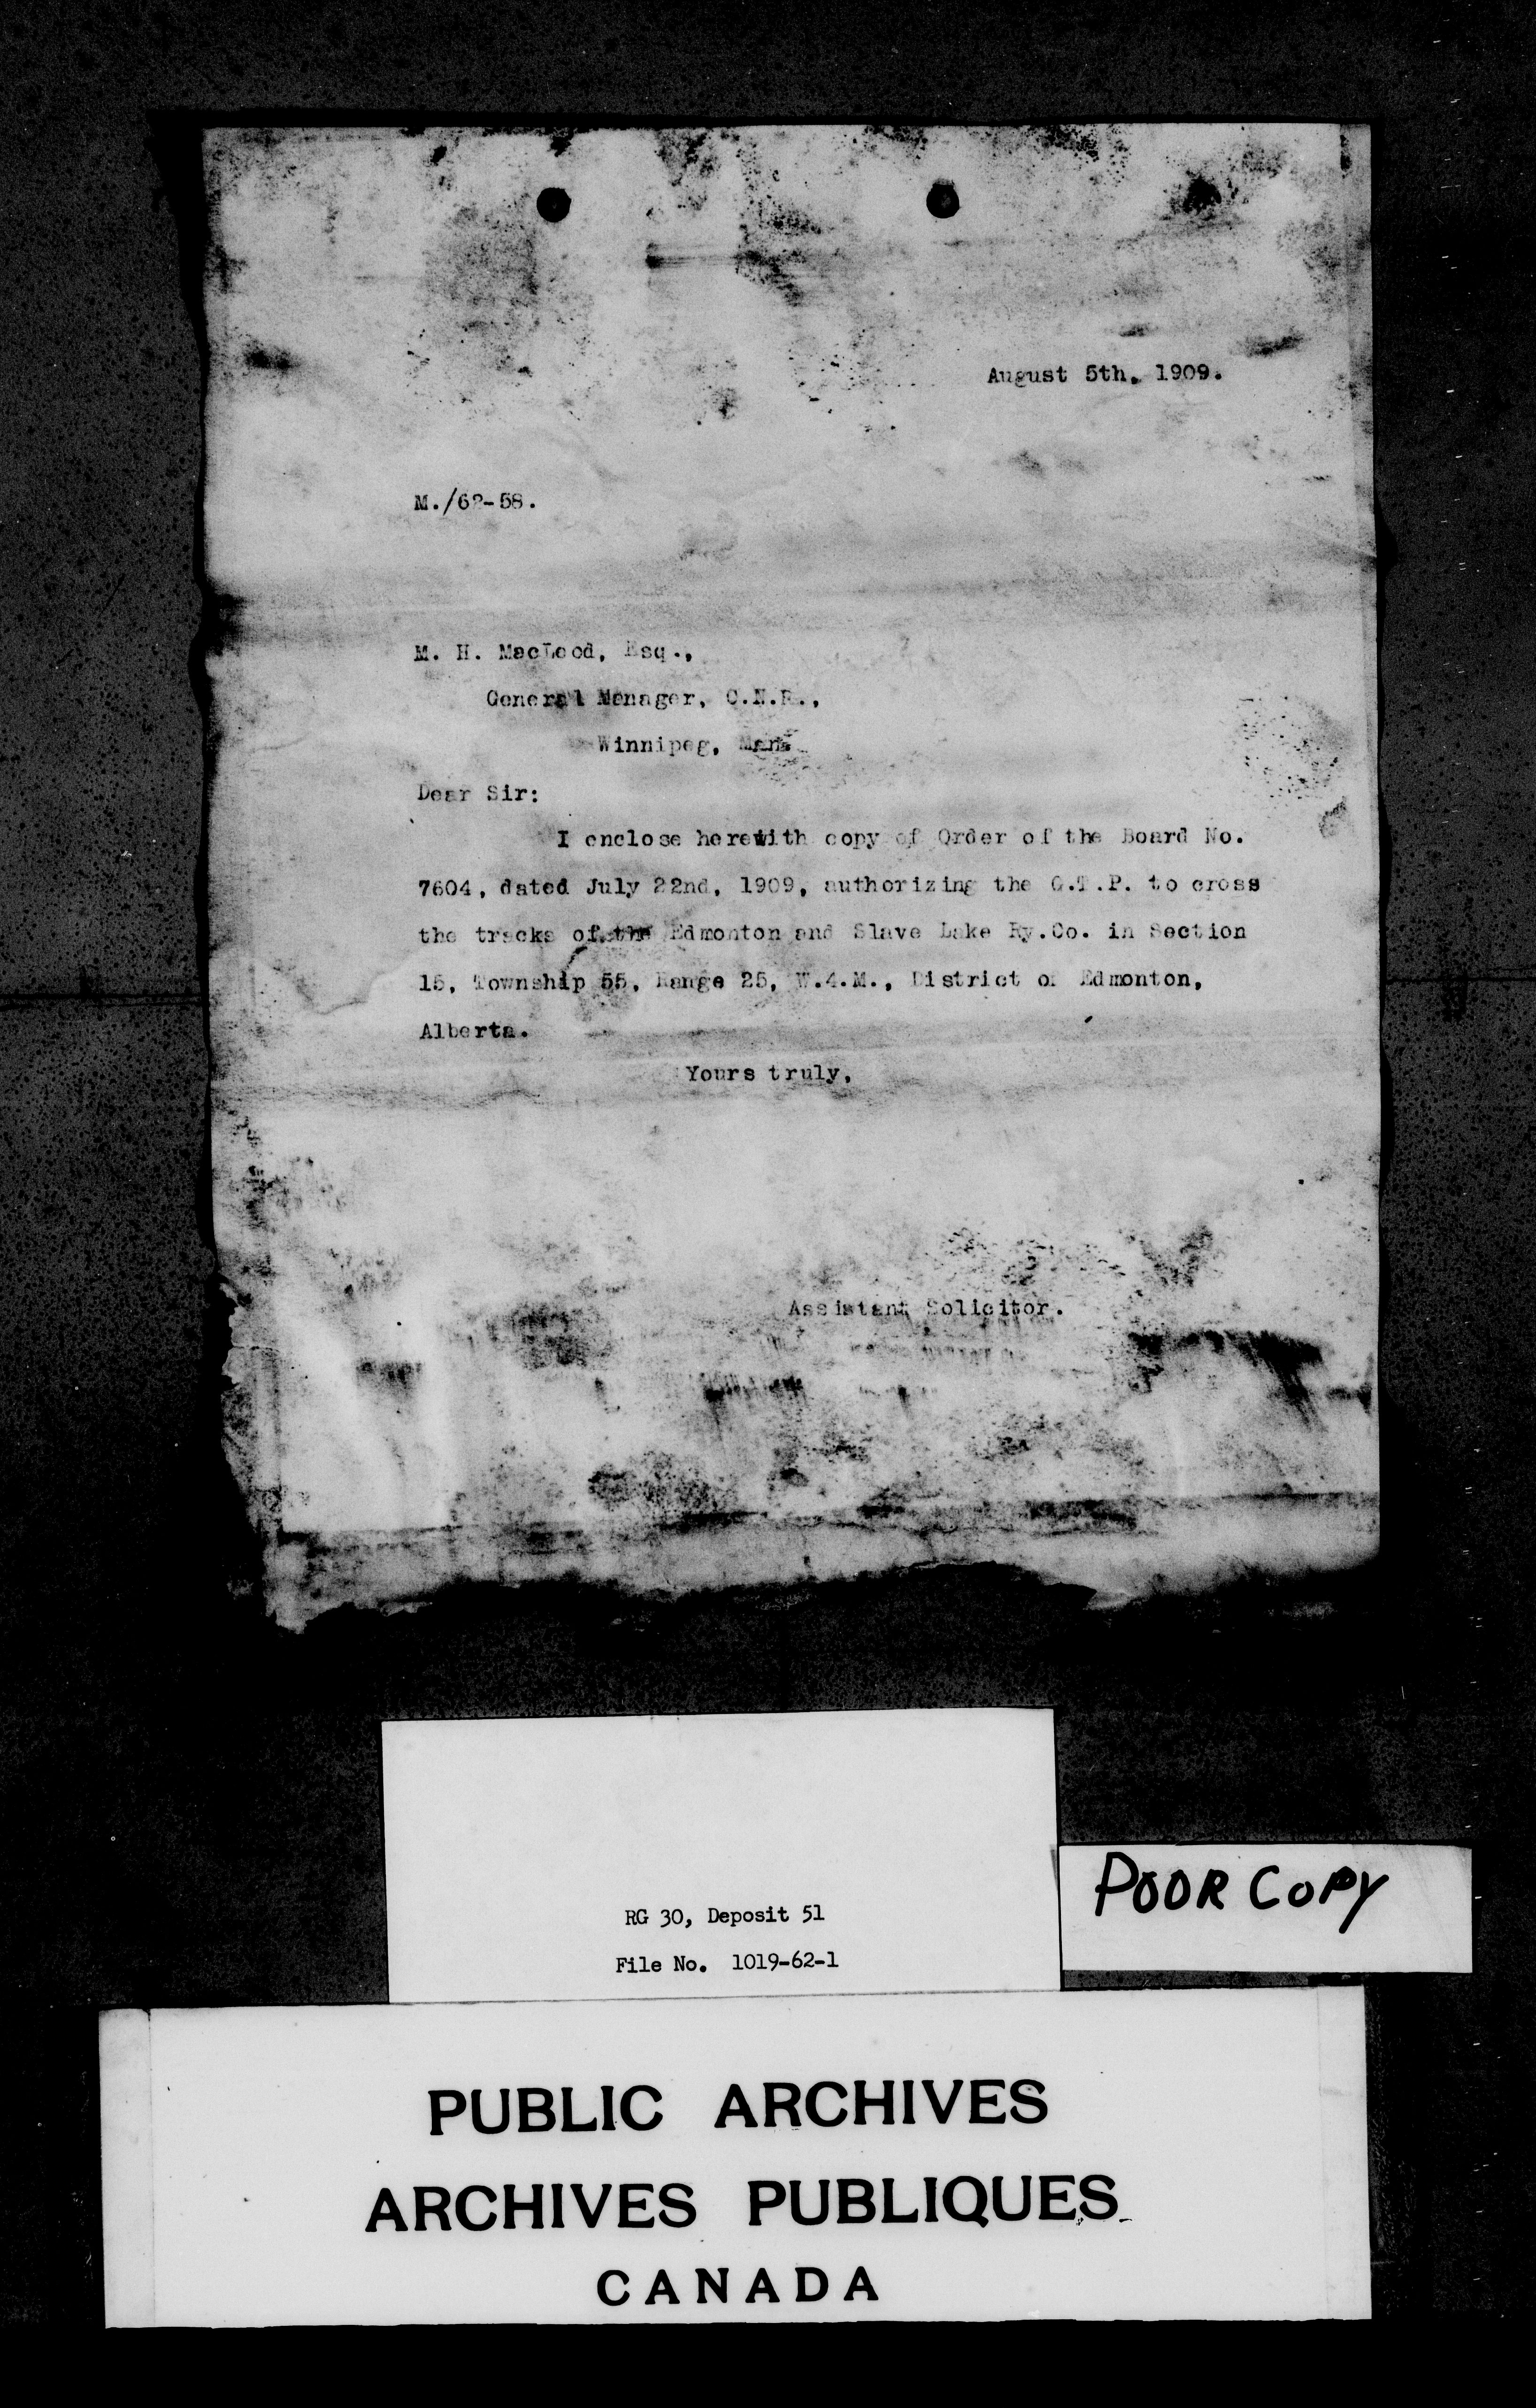 August 5th, 1909.
M./62-58.
M. H. MacLeod, Esq.,
General Manager, C.N.R.,
Winnipeg, Man.
Dear Sir:
I enclose herewith copy of Order of the Board No.
7604, dated July 22nd, 1909, authorizing the G.T.P. to cross
the tracks of the Edmonton and Slave Lake Ry.Co. in Section
15, Township 55, Range 25, W.4.M., District of Edmonton,
Alberta.
Yours truly,
Assistant Solicitor.
RG 30, Deposit 51
File No. 1019-62-1
POOR COPY
PUBLIC ARCHIVES
ARCHIVES PUBLIQUES
CANADA